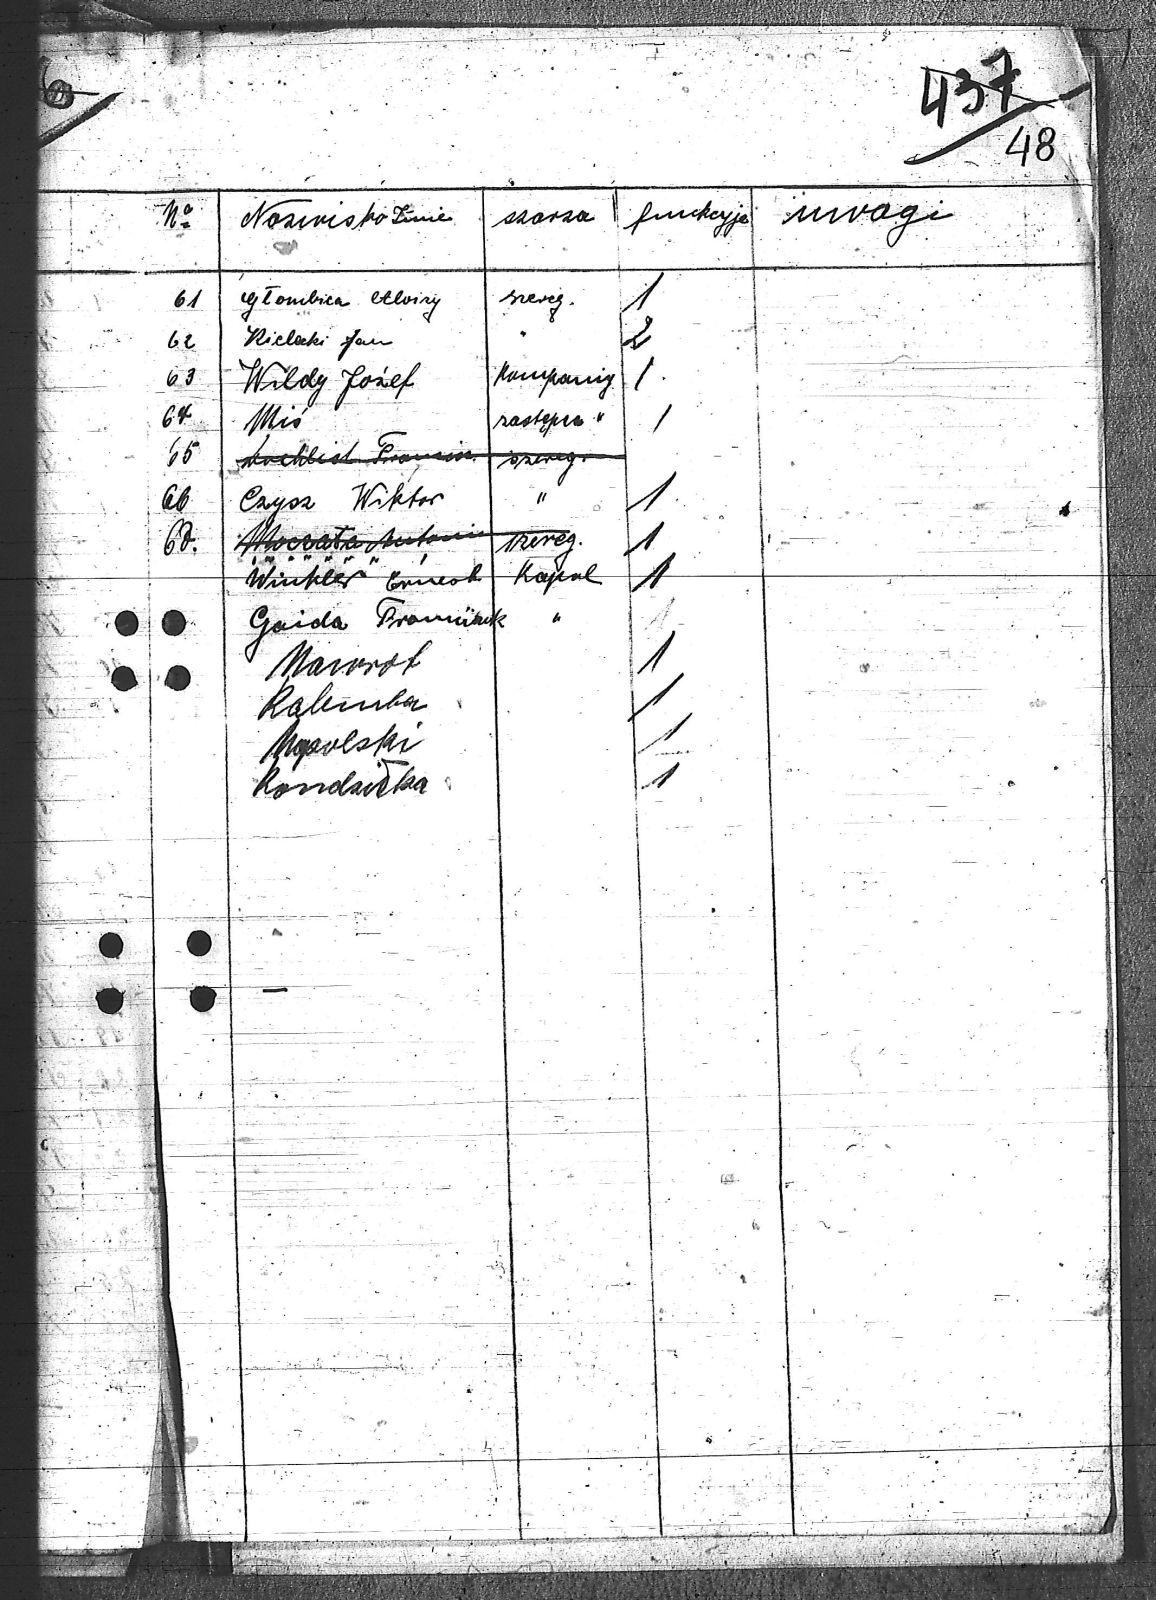 437
48
No Nazwisko Imie szarza funkcyja uwagi
61 Głombica Aloizy szereg. 1
62 Kielecki Jan " 2
63 Wildy Józef Kompanig 1
64 Miś zastępca " 1
65 szereg.
66 Czysz Wiktor " 1
67. Antoni szereg. 1
Winkler Ernest Kapral 1
Gaida Franciszek "
Nawrot 1
Kalemba 1
1
Kondziołka 1